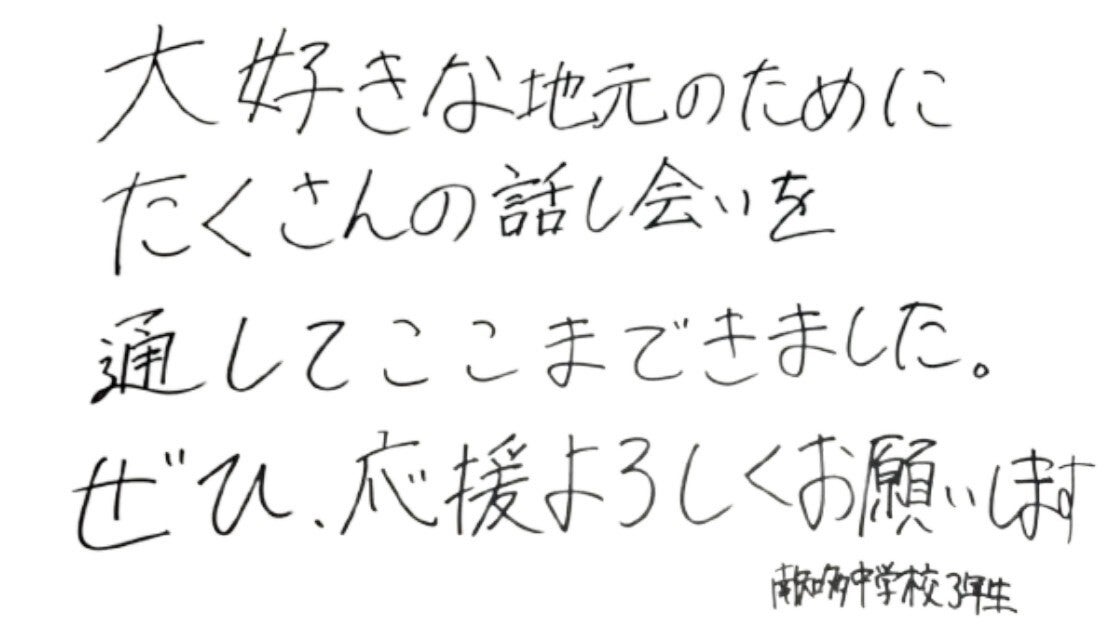 大好きな地元のために
たくさんの話し会いを
通してここまできました。
ぜひ、応援よろしくお願いします
南知多中学校3年生